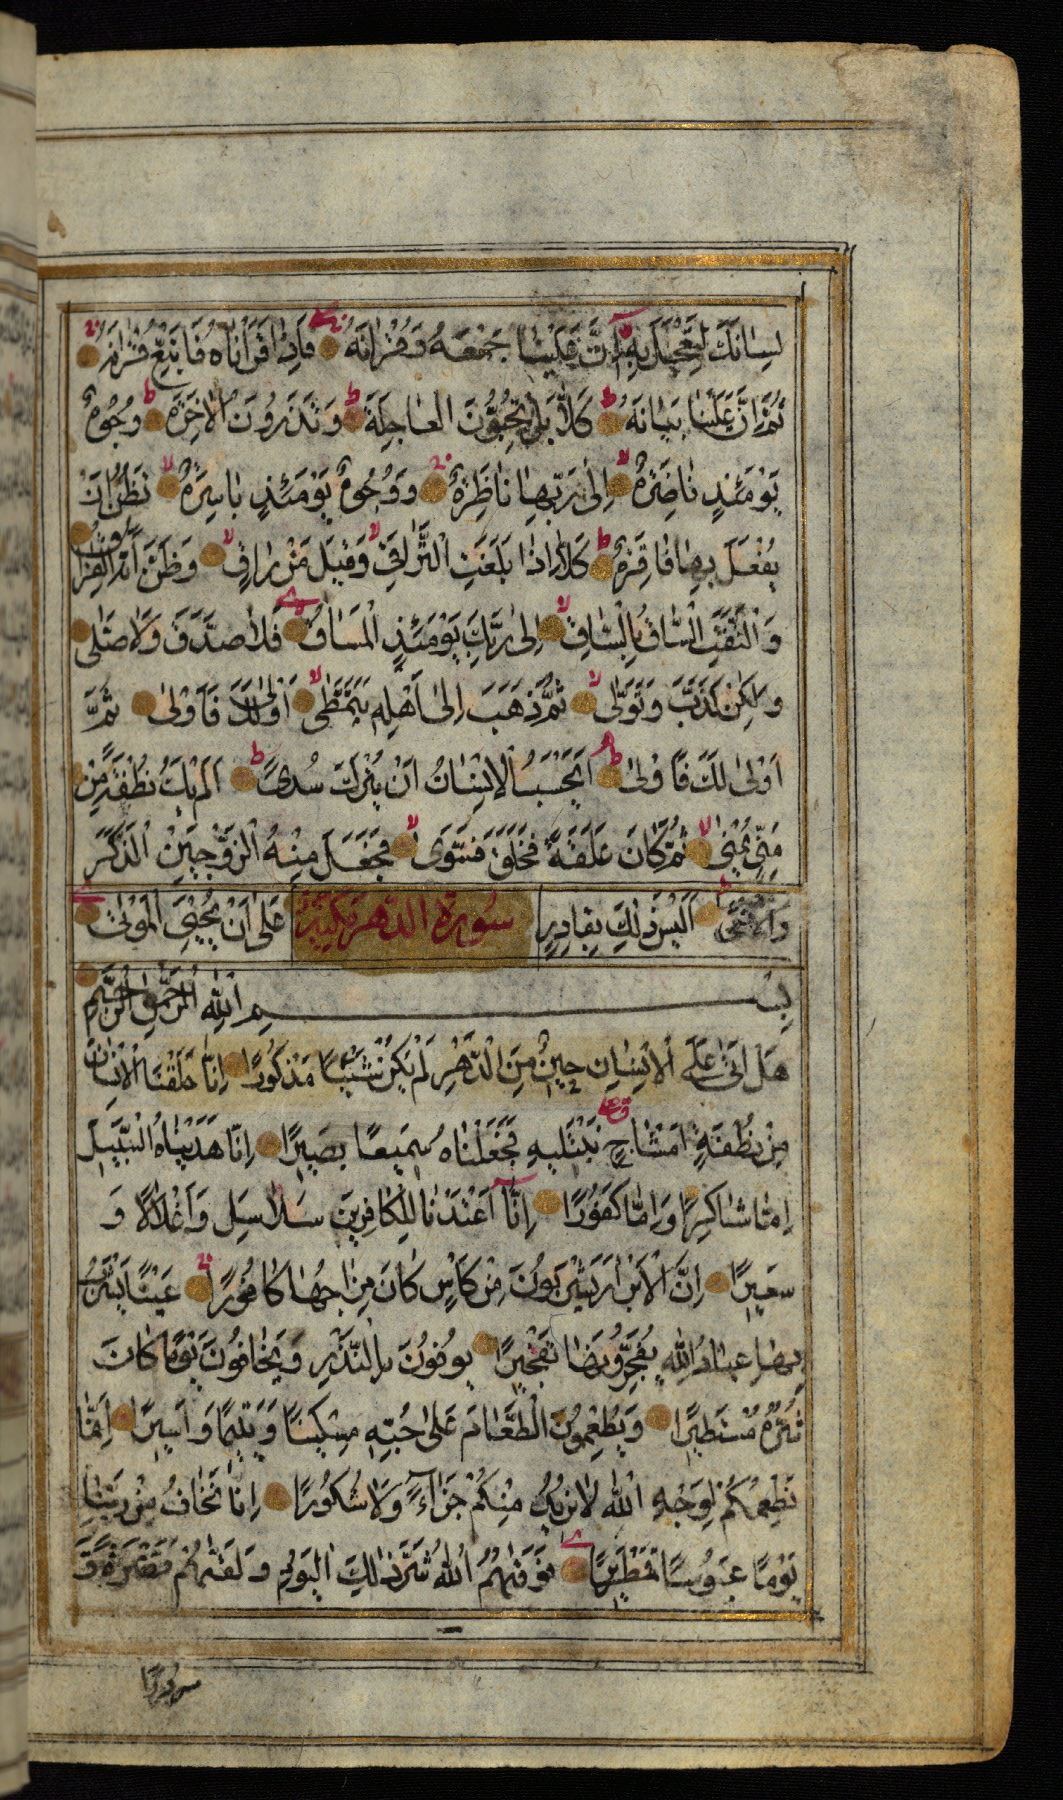 لِسَانَكَ لِتَعْجَلَ بِهِ إِنَّ عَلَيْنَا جَمْعَهُ وَقُرْآنَهُ فَإِذَا قَرَأْنَاهُ فَاتَّبِعْ قُرْآنَهُ
ثُمَّ إِنَّ عَلَيْنَا بَيَانَهُ كَلَّا بَلْ تُحِبُّونَ الْعَاجِلَةَ وَتَذَرُونَ الْآخِرَةَ وُجُوهٌ
يَوْمَئِذٍ نَاضِرَةٌ إِلَىٰ رَبِّهَا نَاظِرَةٌ وَوُجُوهٌ يَوْمَئِذٍ بَاسِرَةٌ تَظُنُّ أَنْ
يُفْعَلَ بِهَا فَاقِرَةٌ كَلَّا إِذَا بَلَغَتِ التَّرَاقِيَ وَقِيلَ مَنْ رَاقٍ وَظَنَّ أَنَّهُ الْفِرَاقُ
وَالْتَفَّتِ السَّاقُ بِالسَّاقِ إِلَىٰ رَبِّكَ يَوْمَئِذٍ الْمَسَاقُ فَلَا صَدَّقَ وَلَا صَلَّىٰ
وَلٰكِنْ كَذَّبَ وَتَوَلَّىٰ ثُمَّ ذَهَبَ إِلَىٰ أَهْلِهِ يَتَمَطَّىٰ أَوْلَىٰ لَكَ فَأَوْلَىٰ ثُمَّ
أَوْلَىٰ لَكَ فَأَوْلَىٰ أَيَحْسَبُ الْإِنْسَانُ أَنْ يُتْرَكَ سُدًى أَلَمْ يَكُ نُطْفَةً مِنْ
مَنِيٍّ يُمْنَىٰ ثُمَّ كَانَ عَلَقَةً فَخَلَقَ فَسَوَّىٰ فَجَعَلَ مِنْهُ الزَّوْجَيْنِ الذَّكَرَ
وَالْأُنْثَىٰ أَلَيْسَ ذَٰلِكَ بِقَادِرٍ سُورَةُ الدَّهْرِ مَكِّيَّةٌ عَلَىٰ أَنْ يُحْيِيَ الْمَوْتَىٰ
بِسْمِ اللهِ الرَّحْمٰنِ الرَّحِيمِ
هَلْ أَتَىٰ عَلَى الْإِنْسَانِ حِينٌ مِنَ الدَّهْرِ لَمْ يَكُنْ شَيْئًا مَذْكُورًا إِنَّا خَلَقْنَا الْإِنْسَانَ
مِنْ نُطْفَةٍ أَمْشَاجٍ نَبْتَلِيهِ فَجَعَلْنَاهُ سَمِيعًا بَصِيرًا إِنَّا هَدَيْنَاهُ السَّبِيلَ
إِمَّا شَاكِرًا وَإِمَّا كَفُورًا إِنَّا أَعْتَدْنَا لِلْكَافِرِينَ سَلَاسِلَ وَأَغْلَالًا وَ
سَعِيرًا إِنَّ الْأَبْرَارَ يَشْرَبُونَ مِنْ كَأْسٍ كَانَ مِزَاجُهَا كَافُورًا عَيْنًا يَشْرَبُ
بِهَا عِبَادُ اللهِ يُفَجِّرُونَهَا تَفْجِيرًا يُوفُونَ بِالنَّذْرِ وَيَخَافُونَ يَوْمًا كَانَ
شَرُّهُ مُسْتَطِيرًا وَيُطْعِمُونَ الطَّعَامَ عَلَىٰ حُبِّهِ مِسْكِينًا وَيَتِيمًا وَأَسِيرًا إِنَّمَا
نُطْعِمُكُمْ لِوَجْهِ اللهِ لَا نُرِيدُ مِنْكُمْ جَزَاءً وَلَا شُكُورًا إِنَّا نَخَافُ مِنْ رَبِّنَا
يَوْمًا عَبُوسًا قَمْطَرِيرًا فَوَقَاهُمُ اللهُ شَرَّ ذَٰلِكَ الْيَوْمِ وَلَقَّاهُمْ نَضْرَةً وَ
سرورًا